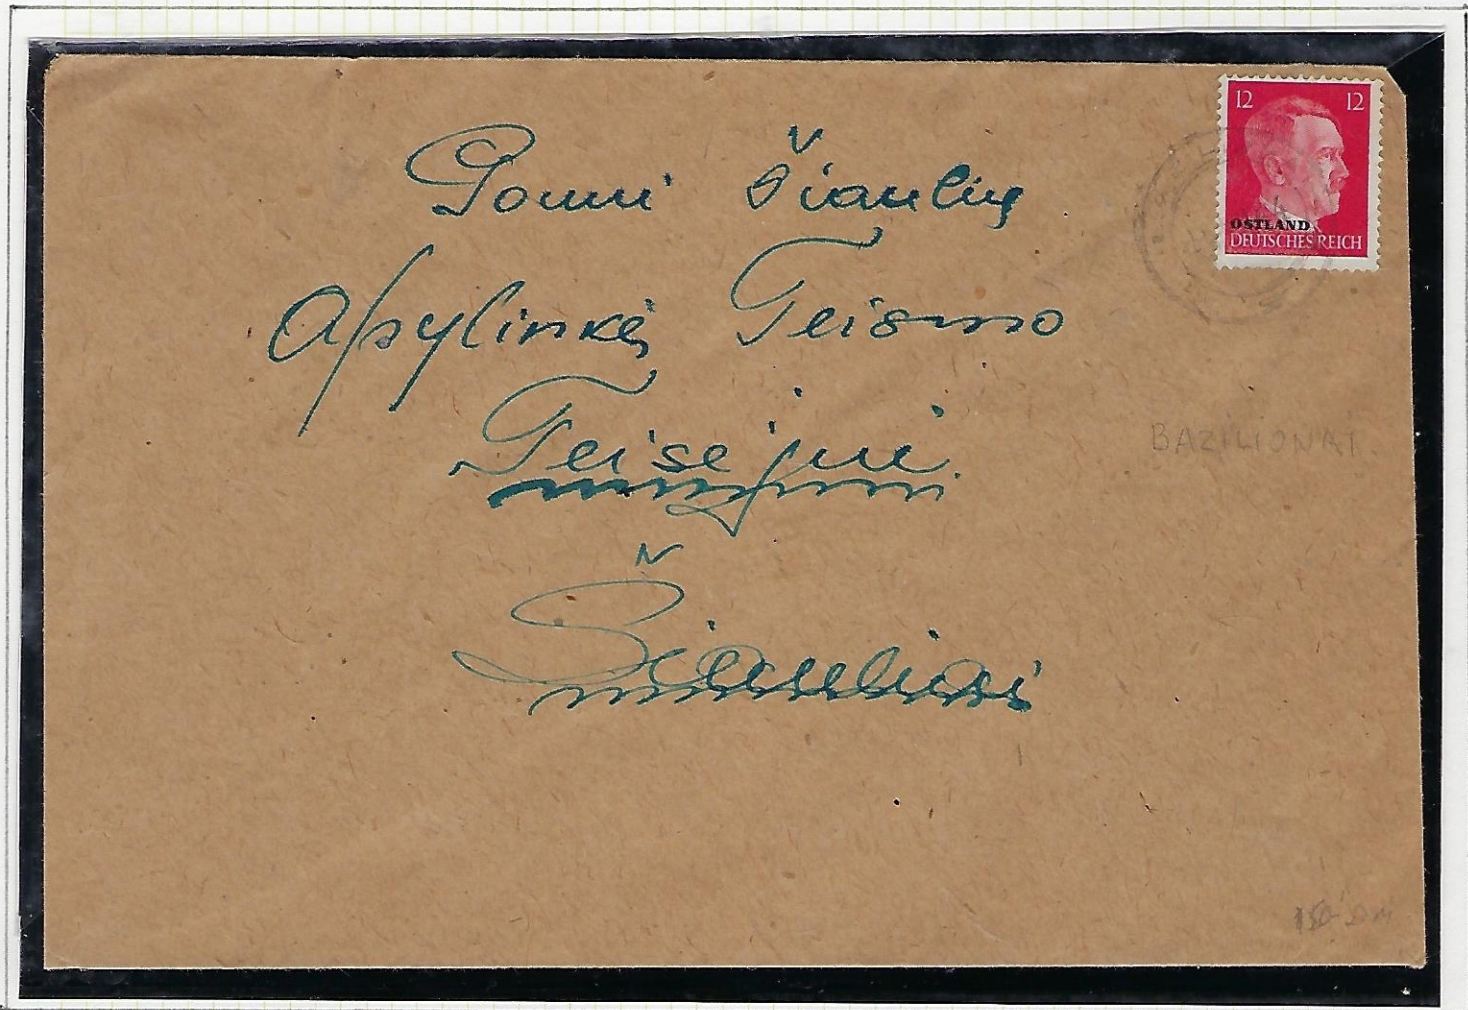 12 12
OSTLAND
DEUTSCHES REICH
Ponui Šiaulių
Apylinkės Teismo
Teisėjui
Šiauliai
BAZILIONAI.